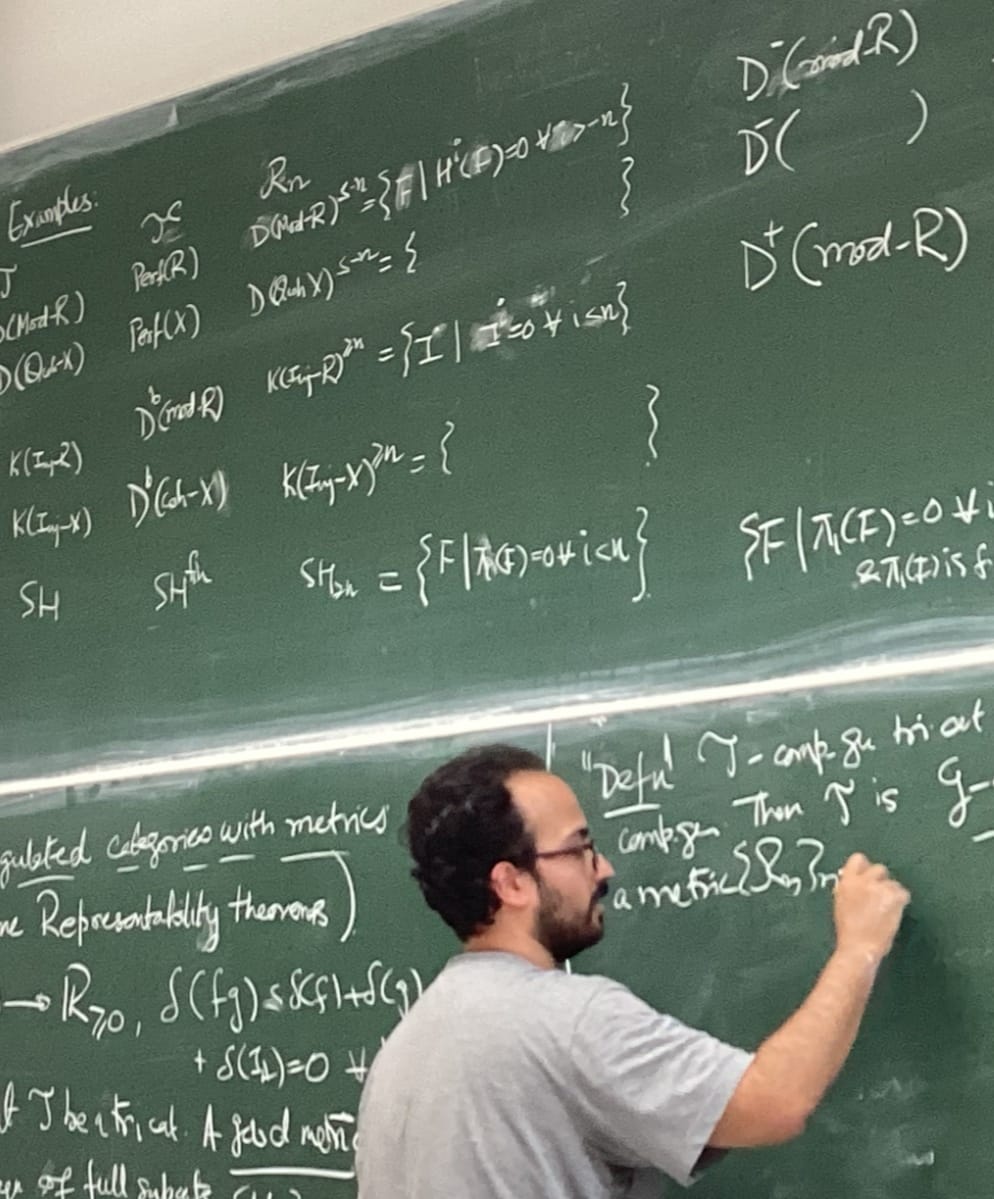 Examples:
𝒯 𝒯ᶜ ℛₙ
D(Mod-R) Perf(R) D(Mod-R)^{≤-n} = {F | Hⁱ(F)=0 ∀ i>-n} D⁻(mod-R)
D(Qcoh-X) Perf(X) D(Qcoh X)^{≤-n} = { } D⁻( )
K(Inj-R) Dᵇ(mod-R) K(Inj-R)^{≥n} = {I | Iⁱ=0 ∀ i≤n} D⁺(mod-R)
K(Inj-X) Dᵇ(Coh-X) K(Inj-X)^{≥n} = { }
SH SH^{fin} SH_{≥n} = {F | πᵢ(F)=0 ∀ i<n} {F | πᵢ(F)=0 ∀ i
& πᵢ(F) is f
gulated categories with metrics
Representability theorems)
→ ℝ≥0, δ(fg) ≤ δ(f)+δ(g)
+ δ(1)=0 ∀
𝒯 be a tri. cat. A good metric
of full subcate
"Defn" 𝒯 - comp. gen tri. cat
comp. gen. Then 𝒯 is G-
a metric {ℛₙ}ₙ